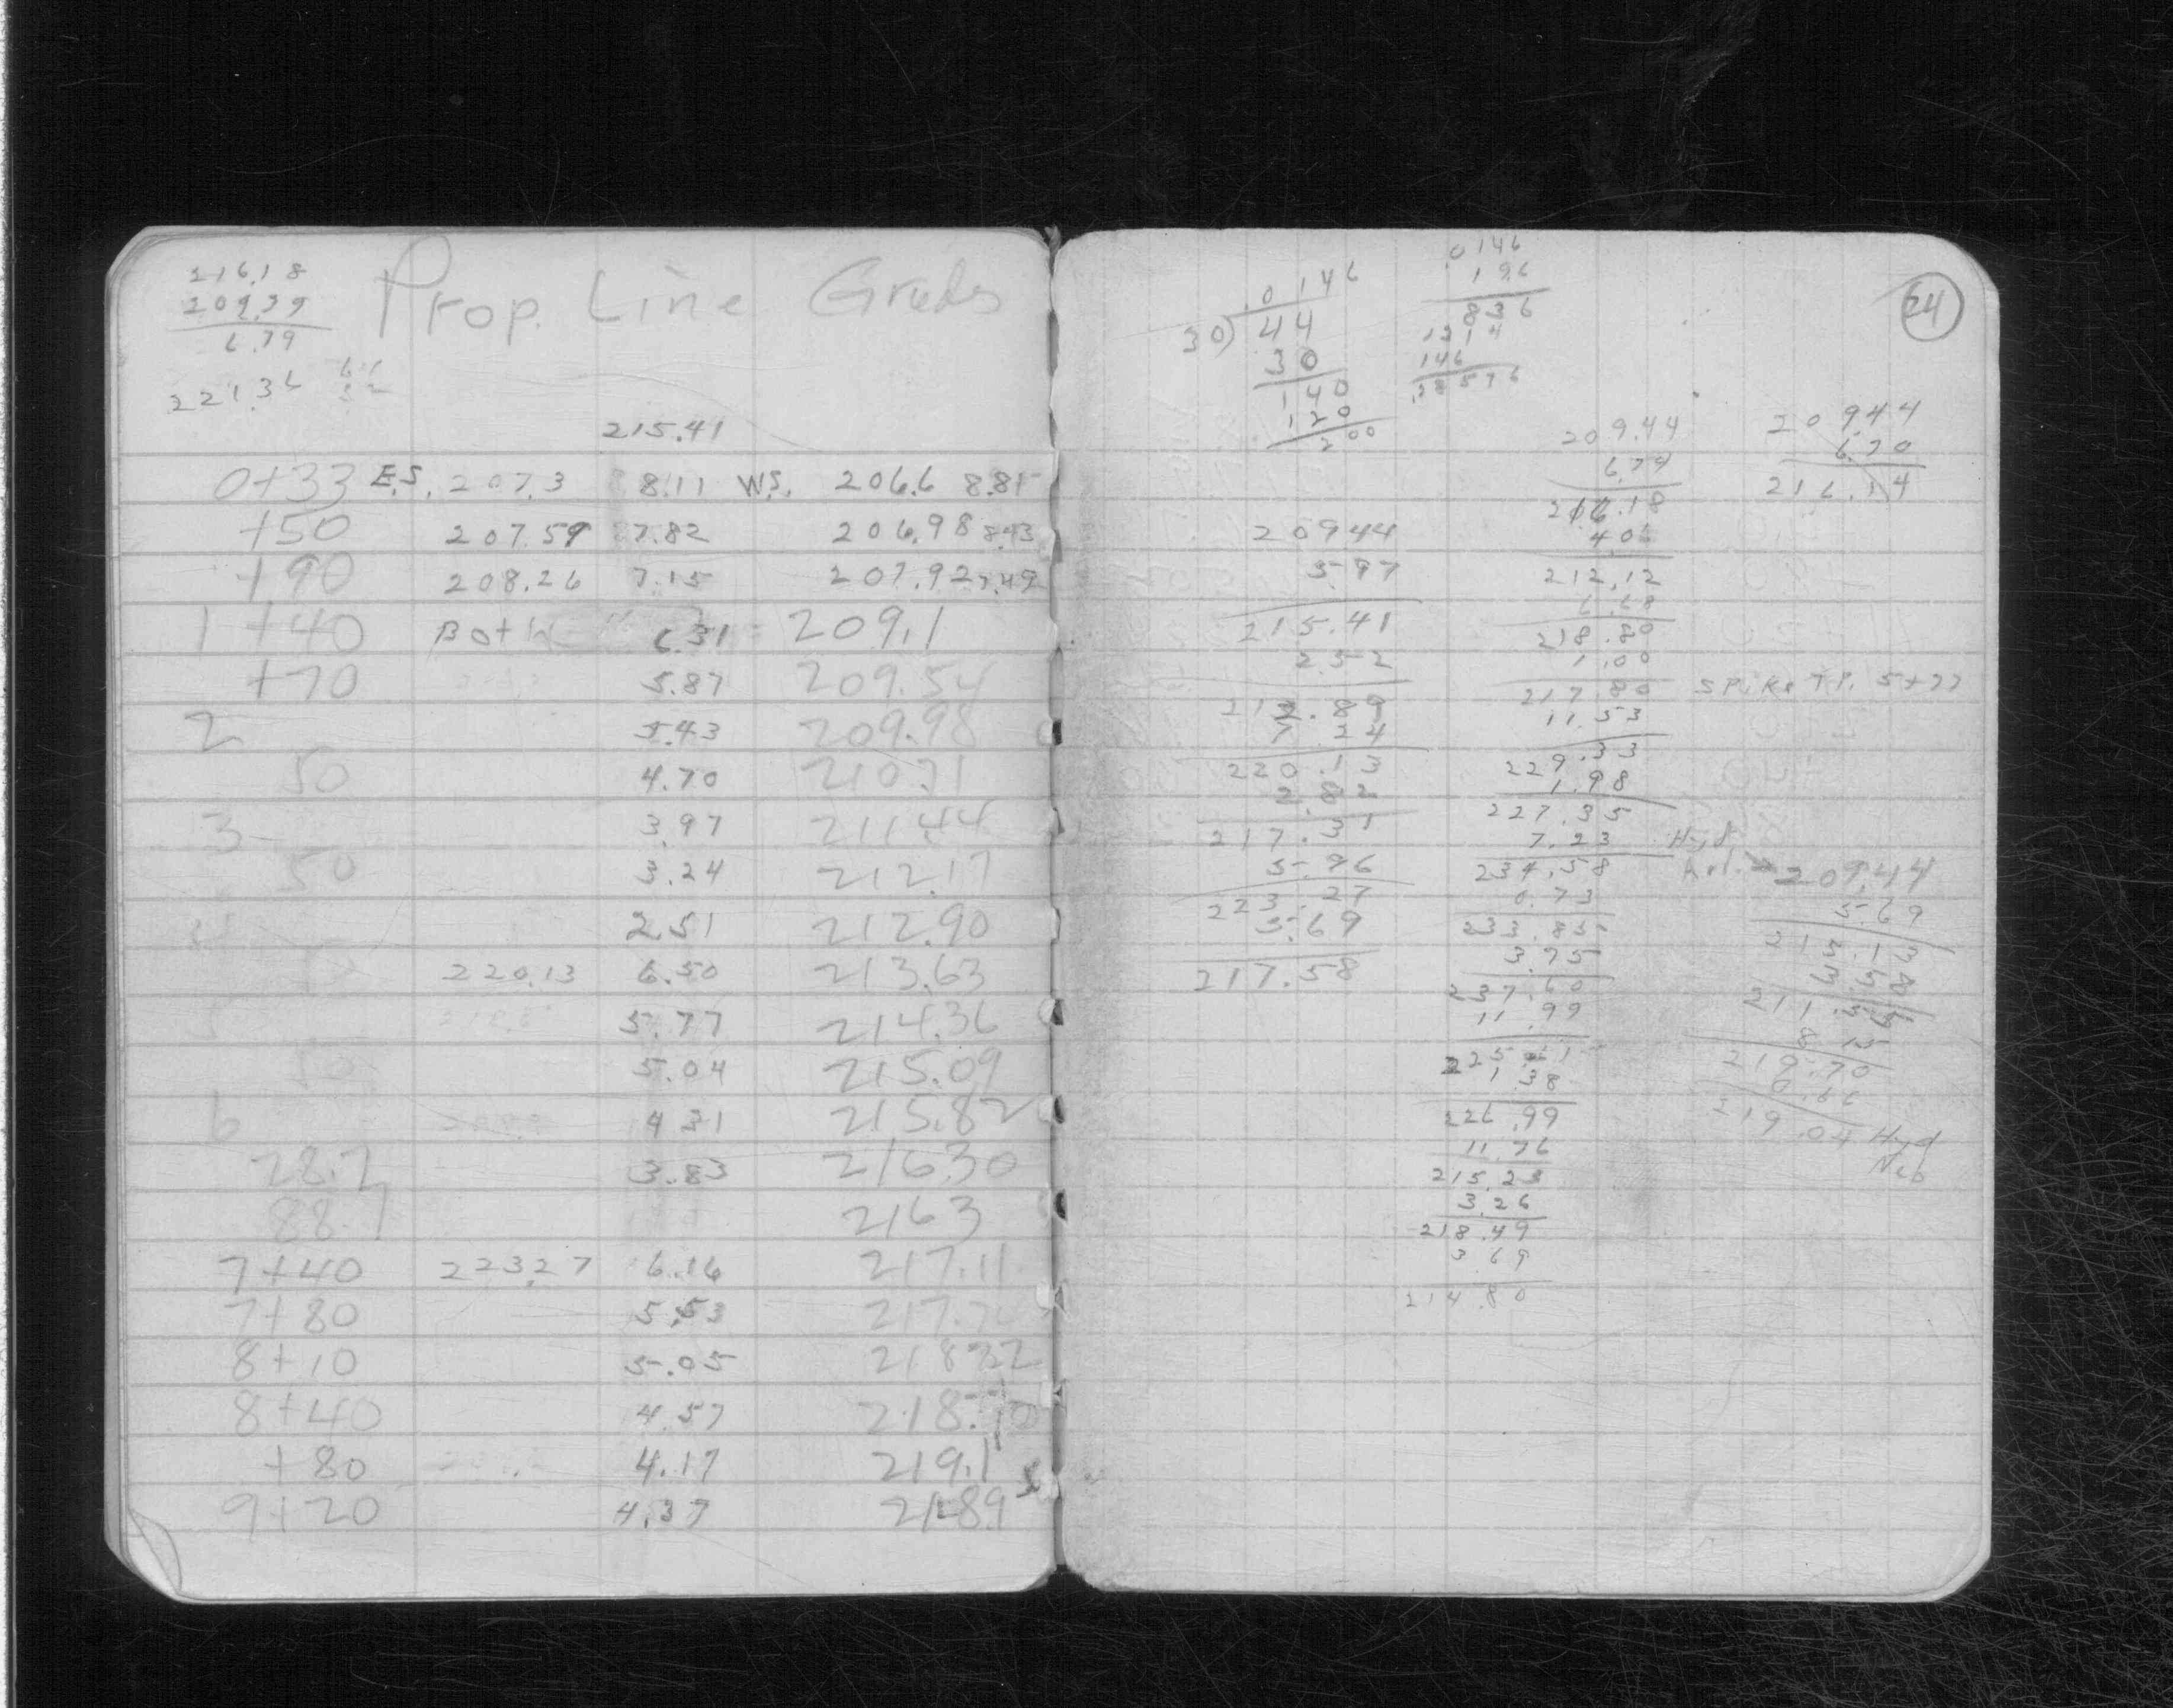 216.18
209.39
6.79
221.36
Prop. Line Grads
215.41
0+33 E.S. 207.3 8.11 W.S. 206.6 8.81
+50 207.59 7.82 206.98 8.43
+90 208.26 7.15 207.92 7.49
1+40 Both 6.31 209.1
+70 5.87 209.54
2 5.43 209.98
50 4.70 210.71
3 3.97 211.44
50 3.24 212.17
4 2.51 212.90
50 220.13 6.50 213.63
5.77 214.36
50 5.04 215.09
6 4.31 215.82
28.7 3.83 216.30
88.7 216.3
7+40 223.27 6.16 217.11
7+80 5.53 217.74
8+10 5.05 218.22
8+40 4.57 218.70
+80 4.17 219.1
9+20 4.37 218.9
24
.0146
30)44
30
140
120
200
.0146
196
836
1314
146
.28576
20944
5.97
215.41
2.52
212.89
7.24
220.13
2.82
217.31
5.96
223.27
5.69
217.58
209.44
6.74
216.18
4.06
212.12
6.68
218.80
1.00
217.80 Spike T.P. 5+77
11.53
229.33
1.98
227.35
7.23 Hyd
234.58
0.73
233.85
3.75
237.60
11.99
225.61
1.38
226.99
11.76
215.23
3.26
218.49
3.69
214.80
209.44
6.70
216.14
209.44
5.69
215.13
3.58
211.55
8.15
219.70
0.66
219.04 Hyd